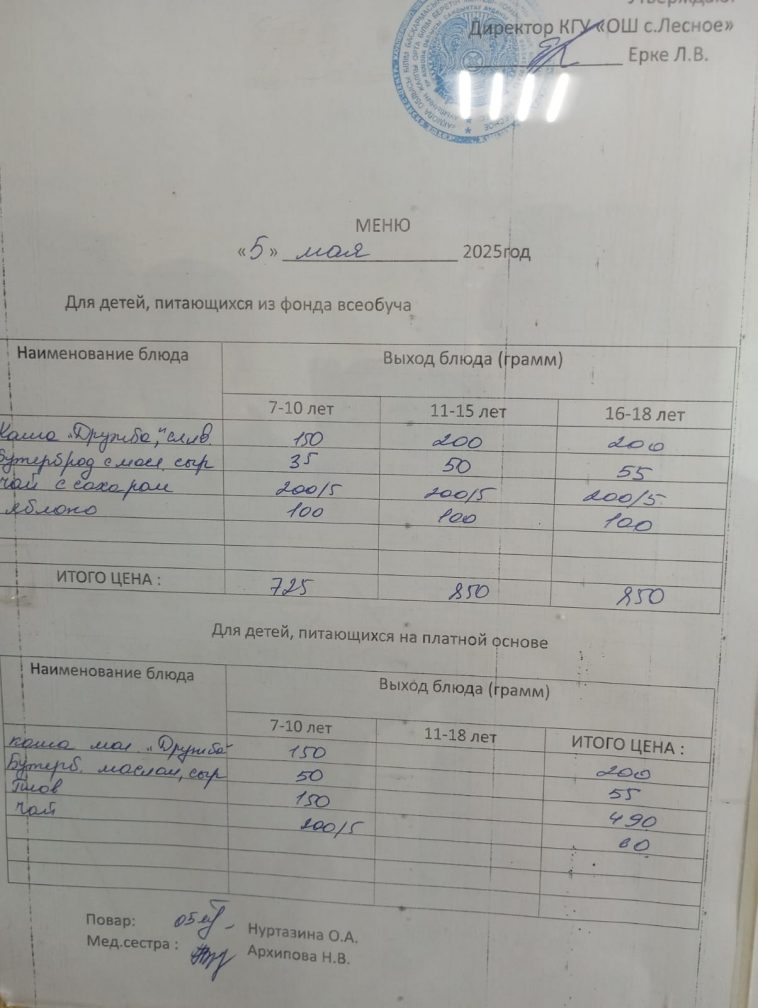 Директор КГУ «ОШ с.Лесное»
Ерке Л.В.
МЕНЮ
«5» мая 2025год
Для детей, питающихся из фонда всеобуча
Наименование блюда Выход блюда (грамм)
7-10 лет 11-15 лет 16-18 лет
Каша „Дружба," слив. 150 200 200
Бутерброд с масл, сыр 35 50 55
чай с сахаром 200/5 200/5 200/5
яблоко 100 100 100
ИТОГО ЦЕНА : 725 850 850
Для детей, питающихся на платной основе
Наименование блюда Выход блюда (грамм)
7-10 лет 11-18 лет ИТОГО ЦЕНА :
каша мол „Дружба" 150 200
Бутерб. маслом, сыр 50 55
Плов 150 490
чай 200/5 60
Повар: Нуртазина О.А.
Мед.сестра : Архипова Н.В.